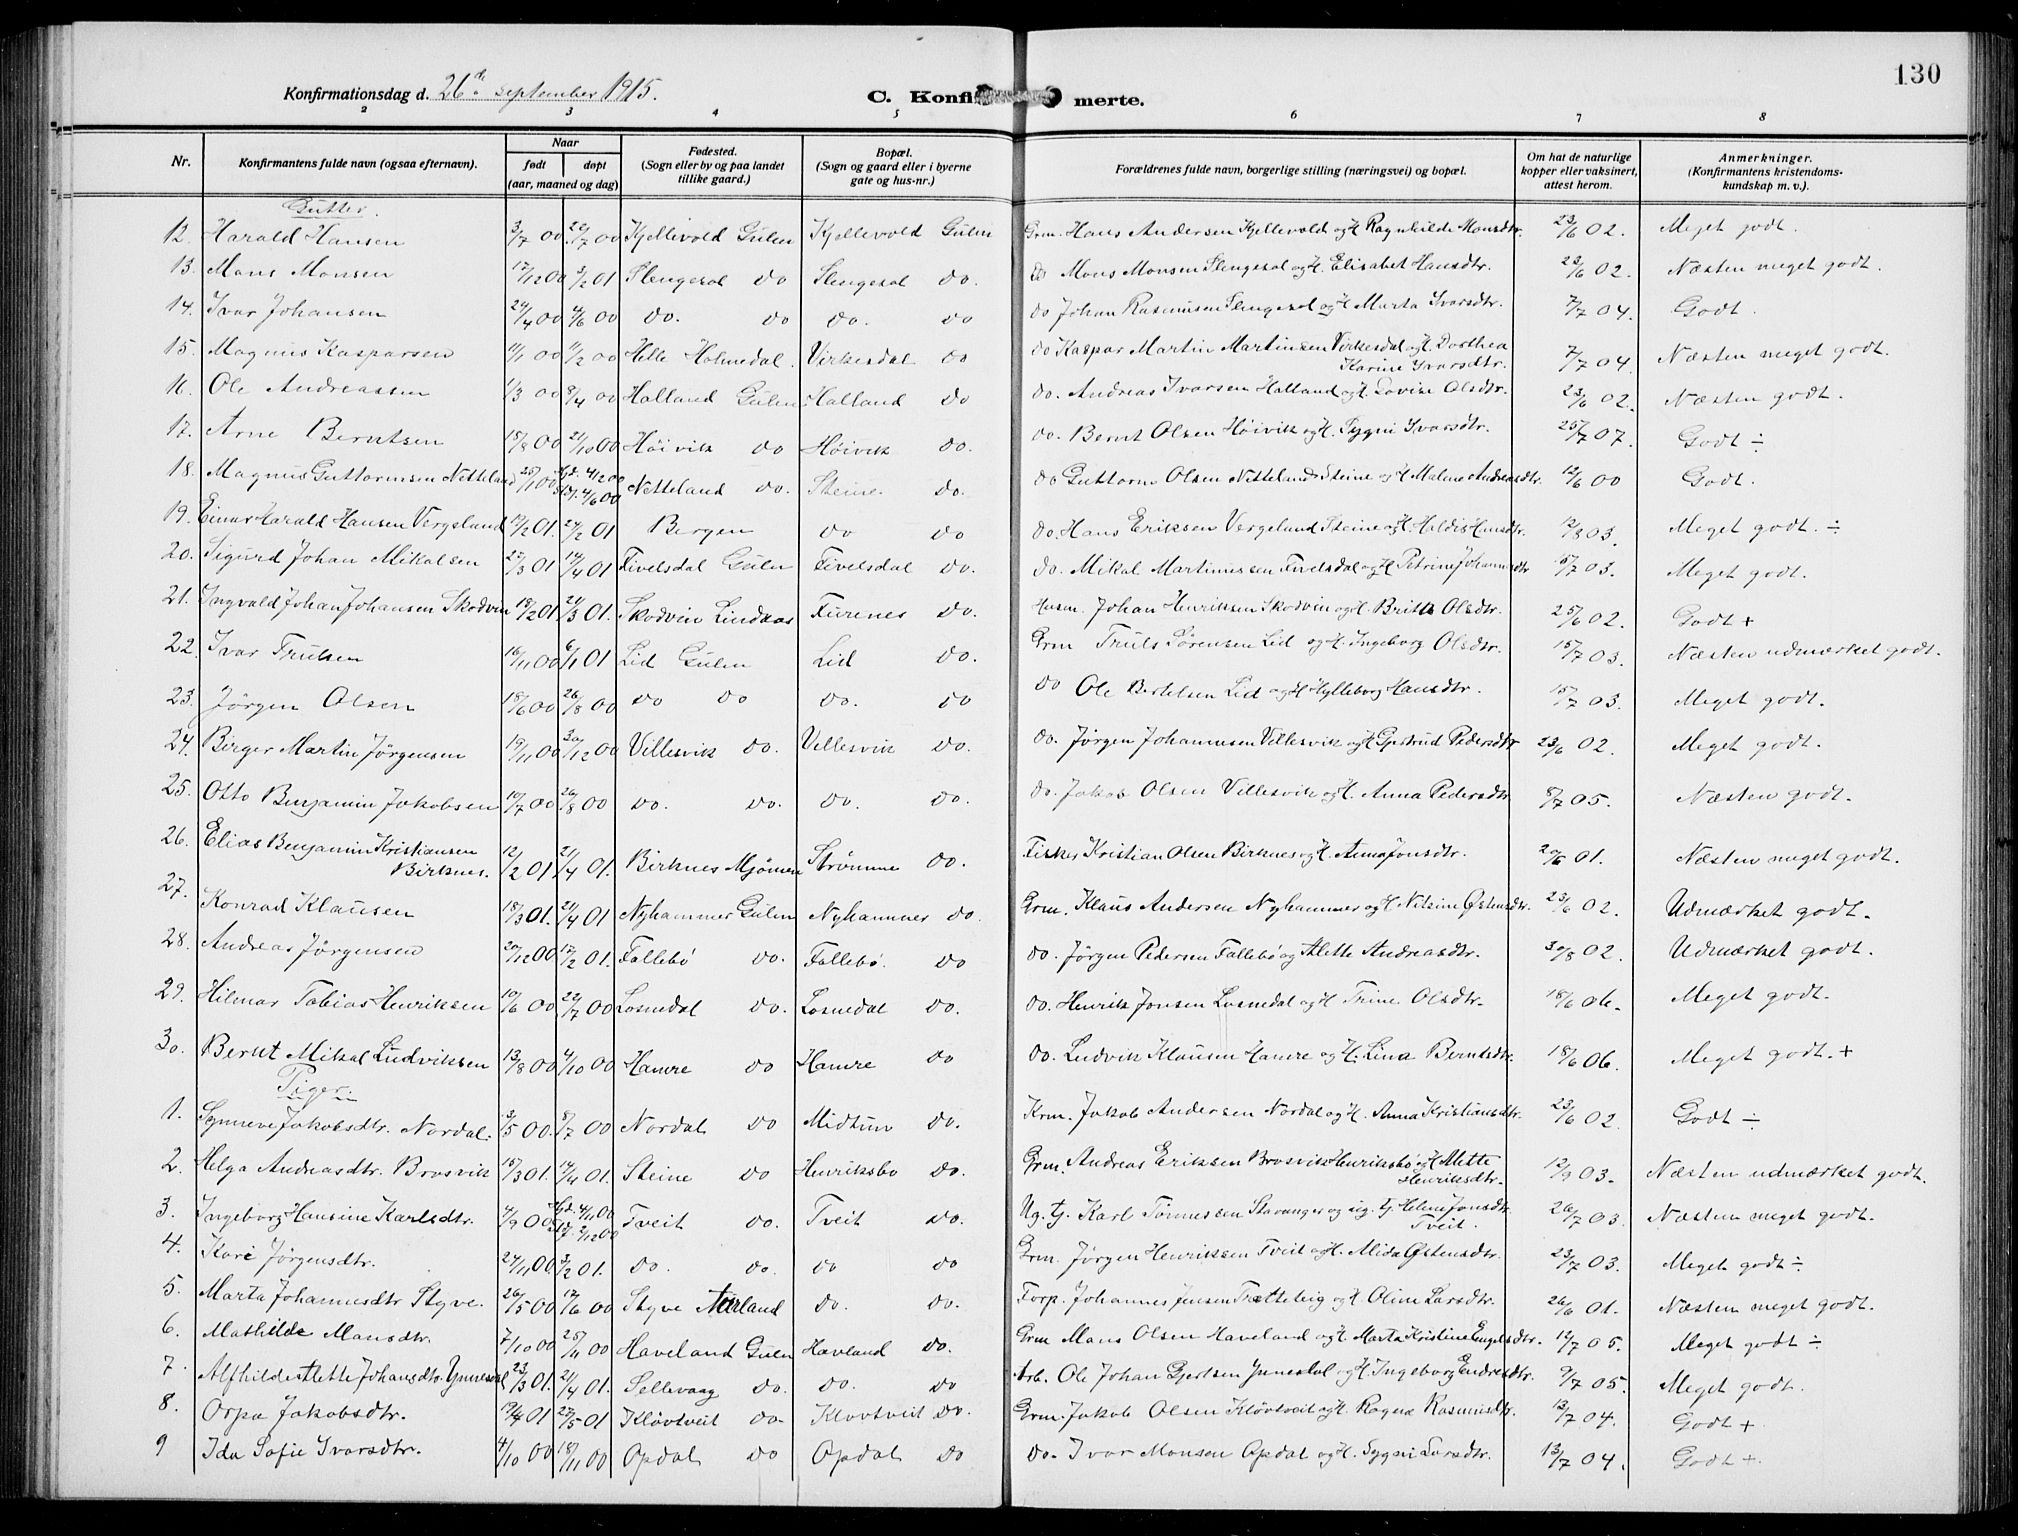 130
Konfirmationsdag d. 26de september 1915.
C. Konfi merte.
2 3 4 5 6 7 8
Nr. Konfirmantens fulde navn (ogsaa efternavn). Naar født døpt (aar, maaned og dag) Fødested. (Sogn eller by og paa landet tillike gaard.) Bopæl. (Sogn og gaard eller i byerne gate og hus-nr.) Forældrenes fulde navn, borgerlige stilling (næringsvei) og bopæl. Om hat de naturlige kopper eller vaksinert, attest herom. Anmerkninger. (Konfirmantens kristendoms-kundskap m. v.).
Gutter.
12. Harald Hansen 3/7 00. 22/7 00 Kjellevold Gulen Kjellevold Gulen Grm. Hans Andersen Kjellevold og H. Ragnhilde Monsdtr. 23/6 02. Meget godt.
13. Mons Monsen 17/12 00 3/2 01 Slengesol do Slengesol do. do Mons Monsen Slengesol og H. Elisabet Hansdtr. 23/6 02. Næsten meget godt.
14. Ivar Johansen 24/4 00 4/6 00 do. do do. do do Johan Rasmusen Slengesol og H Marta Ivarsdtr. 7/7 04. Godt.
15. Magnus Kasparsen 11/1 00 11/2 00 Helle Holmedal. Virkesdal do do Kaspar Martin Martinsen Virkesdal og H. Dorthea Karine Ivarsdtr. 7/7 04. Næsten meget godt.
16. Ole Andreassen 1/3 00 8/4 00 Halland Gulen Halland do do. Andreas Ivarsen Halland og H. Lovise Olsdtr. 23/6 02. Næsten godt.
17. Arne Berntsen 18/8 00 21/10 00 Höivik do Höivik do. do. Bernt Olsen Höivik og H. Sygni Ivarsdtr. 25/7 07. Godt ÷
18. Magnus Guttormsen Netteland 25/1 00 Hjd. 4/2 00 Stdf. 4/6 00 Netteland do. Steine do. do Guttorm Olsen Netteland Steine og H Malene Andreasdtr. 12/6 00 Godt.
19. Einar Harald Hansen Vergeland 19/2 01. 24/2 01 Bergen do do do. Hans Eriksen Vergeland Steine og H. Heldis Hansdtr. 12/8 03. Meget godt. ÷
20. Sigurd Johan Mikalsen 27/3 01 14/4 01 Fivelsdal Gulen Fivelsdal do. do. Mikal Martinussen Fivelsdal og H Petrine Johannesdtr 15/7 03. Meget godt.
21. Ingvald Johan Johansen Skodvin 19/2 01 24/3 01. Skodvin Lindaas Furenes do. Husm. Johan Henriksen Skodvin og H. Britte Olsdtr. 25/6 02. Godt +
22. Ivar Trulsen 16/11 00 6/1 01 Lid Gulen Lid do. Grm Truls Sørensen Lid og H. Ingeborg Olsdtr. 15/7 03. Næsten udmærket godt.
23. Jørgen Olsen 18/6 00 26/8 00 do do do. do do Ole Bertelsen Lid og H Hylleborg Hansdtr. 15/7 03. Meget godt.
24. Birger Martin Jørgensen 19/11 00 30/12 00 Villesvik do. Villesvik do. do. Jørgen Johannesen Villesvik og H Gjertrud Pedersdtr 23/6 02. Meget godt.
25. Otto Benjamin Jakobsen 10/7 00 26/8 00 do. do. do. do. do. Jakob Olsen Villesvik og H. Anna Pedersdtr 8/7 05. Næsten godt.
26. Elias Benjamin Kristiansen Birknes. 12/2 01 21/4 01. Birknes Mjömen Strömme do. Fisker Kristian Olsen Birknes og H. Anna Jonsdtr. 20/6 01. Næsten meget godt.
27. Konrad Klausen 18/3 01. 21/4 01 Nyhammer Gulen Nyhammer do. Grm. Klaus Andersen Nyhammer og H Nilsine Østensdtr. 23/6 02. Udmærket godt.
28. Andreas Jørgensen 20/12 00 17/2 01. Fallebö do. Fallebö. do do. Jørgen Pedersen Fallebö og Alette Andreasdtr. 30/8 02. Udmærket godt.
29. Hilmar Tobias Henriksen 10/6 00 22/7 00 Losnedal do. Losnedal do. do. Henrik Jonsen Losnedal og H Trine Olsdtr. 18/6 06. Meget godt.
30. Bernt Mikal Ludviksen 13/8 00 4/10 00 Hamre do Hamre do do. Ludvik Klausen Hamre og H. Lina Berntsdtr. 18/6 06. Meget godt. +
Piger.
1. Synneve Jakobsdtr. Nordal. 3/5 00. 8/7 00 Nordal do Midtun do. Krm. Jakob Andersen Nordal og H. Anna Kristiansdtr. 23/6 02. Godt ÷
2. Helga Andreasdtr. Brosvik 15/3 01. 14/4 01. Steine do Henriksbo do. Grm. Andreas Eriksen Brosvik Henriksbö og H Mette Henriksdtr. 12/9 03. Næsten udmærket godt.
3. Ingeborg Hansine Karlsdtr. 4/9 00 Hjd. 4/11 00 Stdf. 2/12 00 Tveit do. Tveit do. Ug. tj. Karl Tønnessen Stavanger og pig. tj. Helene Jonsdtr. Tveit. 20/7 03. Næsten meget godt.
4. Kari Jørgensdtr. 24/11 00. 3/2 01. do. do. do do Grm. Jørgen Henriksen Tveit og H. Mida Østensdtr. 23/7 03. Meget godt ÷
5. Marta Johannesdtr Styve. 26/5 00 17/6 00 Styve Aarland do. do. Forp. Johannes Jensen Trætteteig og H Oline Larsdtr. 26/6 01. Næsten meget godt.
6. Mathilde Mansdtr. 7/10 00 25/11 00 Haveland Gulen Havland do. Grm Mans Olsen Haveland og H. Marta Kristine Engelsdtr. 12/7 05. Meget godt ÷
7. Alfhilde Alette Johansdtr. Ynnesdal 23/3 01. 21/4 01. Sellevaag do. do. do Arb. Ole Johan Gjertsen Ynnesdal og H Ingeborg Endresdtr. 9/7 05. Meget godt.
8. Orpa Jakobsdtr. 19/4 01 27/5 01 Klövtveit do. Klovtveit do. Grm. Jakob Olsen Klövtveit og H. Ragna Rasmusdtr. 13/7 04. Godt +
9 Ida Sofie Ivarsdtr. 4/10 00 18/11 00 Opdal do Opdal do do. Ivar Monsen Opdal og H. Sygni Larsdtr. 13/7 04. Godt +.